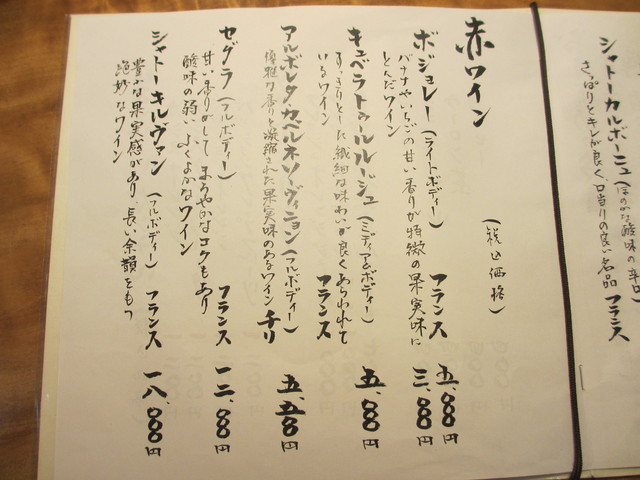 シャトーカルボーニュ（ほのかな酸味の辛口
さっぱりとキレが良く、口当りの良い名品 フランス
赤ワイン
（税込価格）
ボジョレー（ライトボディー） フランス 五、〇〇〇円
バナナやいちごの甘い香りが特徴の果実味に 三、〇〇〇円
とんだワイン
キュベラトゥールルージュ（ミディアムボディー） 五、〇〇〇円
すっきりとした繊細な味わいが良くあらわれて
いるワイン フランス
アルボレダ・カベルネソーヴィニョン（フルボディー）
優雅な香りと凝縮された果実味のあるワイン チリ 五、五〇〇円
セグラ（フルボディー） フランス 一二、〇〇〇円
甘い香りがして まろやかなコクもあり
酸味の弱い ふくよかなワイン
シャトーキルヴァン（フルボディー） フランス 一八、〇〇〇円
豊かな果実感があり、長い余韻をもつ
絶妙なワイン